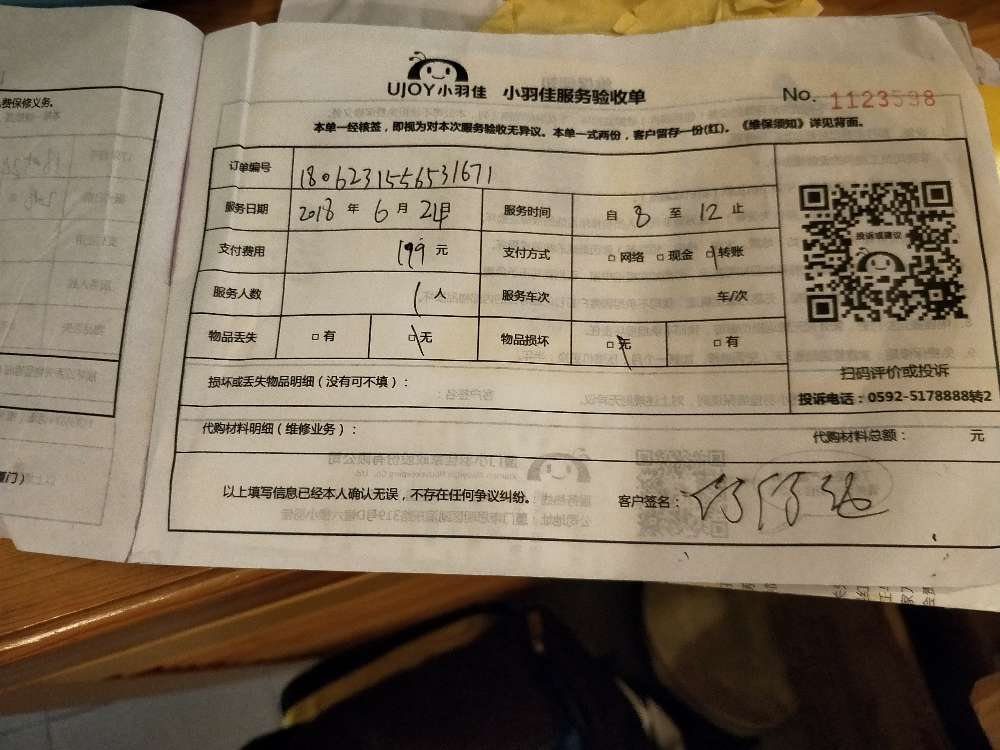 费保修义务。
UJOY小羽佳 小羽佳服务验收单
No. 1123598
本单一经核签，即视为对本次服务验收无异议。本单一式两份，客户留存一份(红)。《维保须知》详见背面。
订单编号 1806231556531671
服务日期 2018 年 6 月 24日 服务时间 自 8 至 12 止
支付费用 199 元 支付方式 □ 网络 □ 现金 □ 转账
服务人数 1 人 服务车次 车/次
物品丢失 □ 有 □ 无 物品损坏 □ 无 □ 有
投诉或建议
扫码评价或投诉
投诉电话：0592-5178888转2
损坏或丢失物品明细（没有可不填）：
代购材料明细（维修业务）： 代购材料总额： 元
以上填写信息已经本人确认无误，不存在任何争议纠纷。 客户签名：